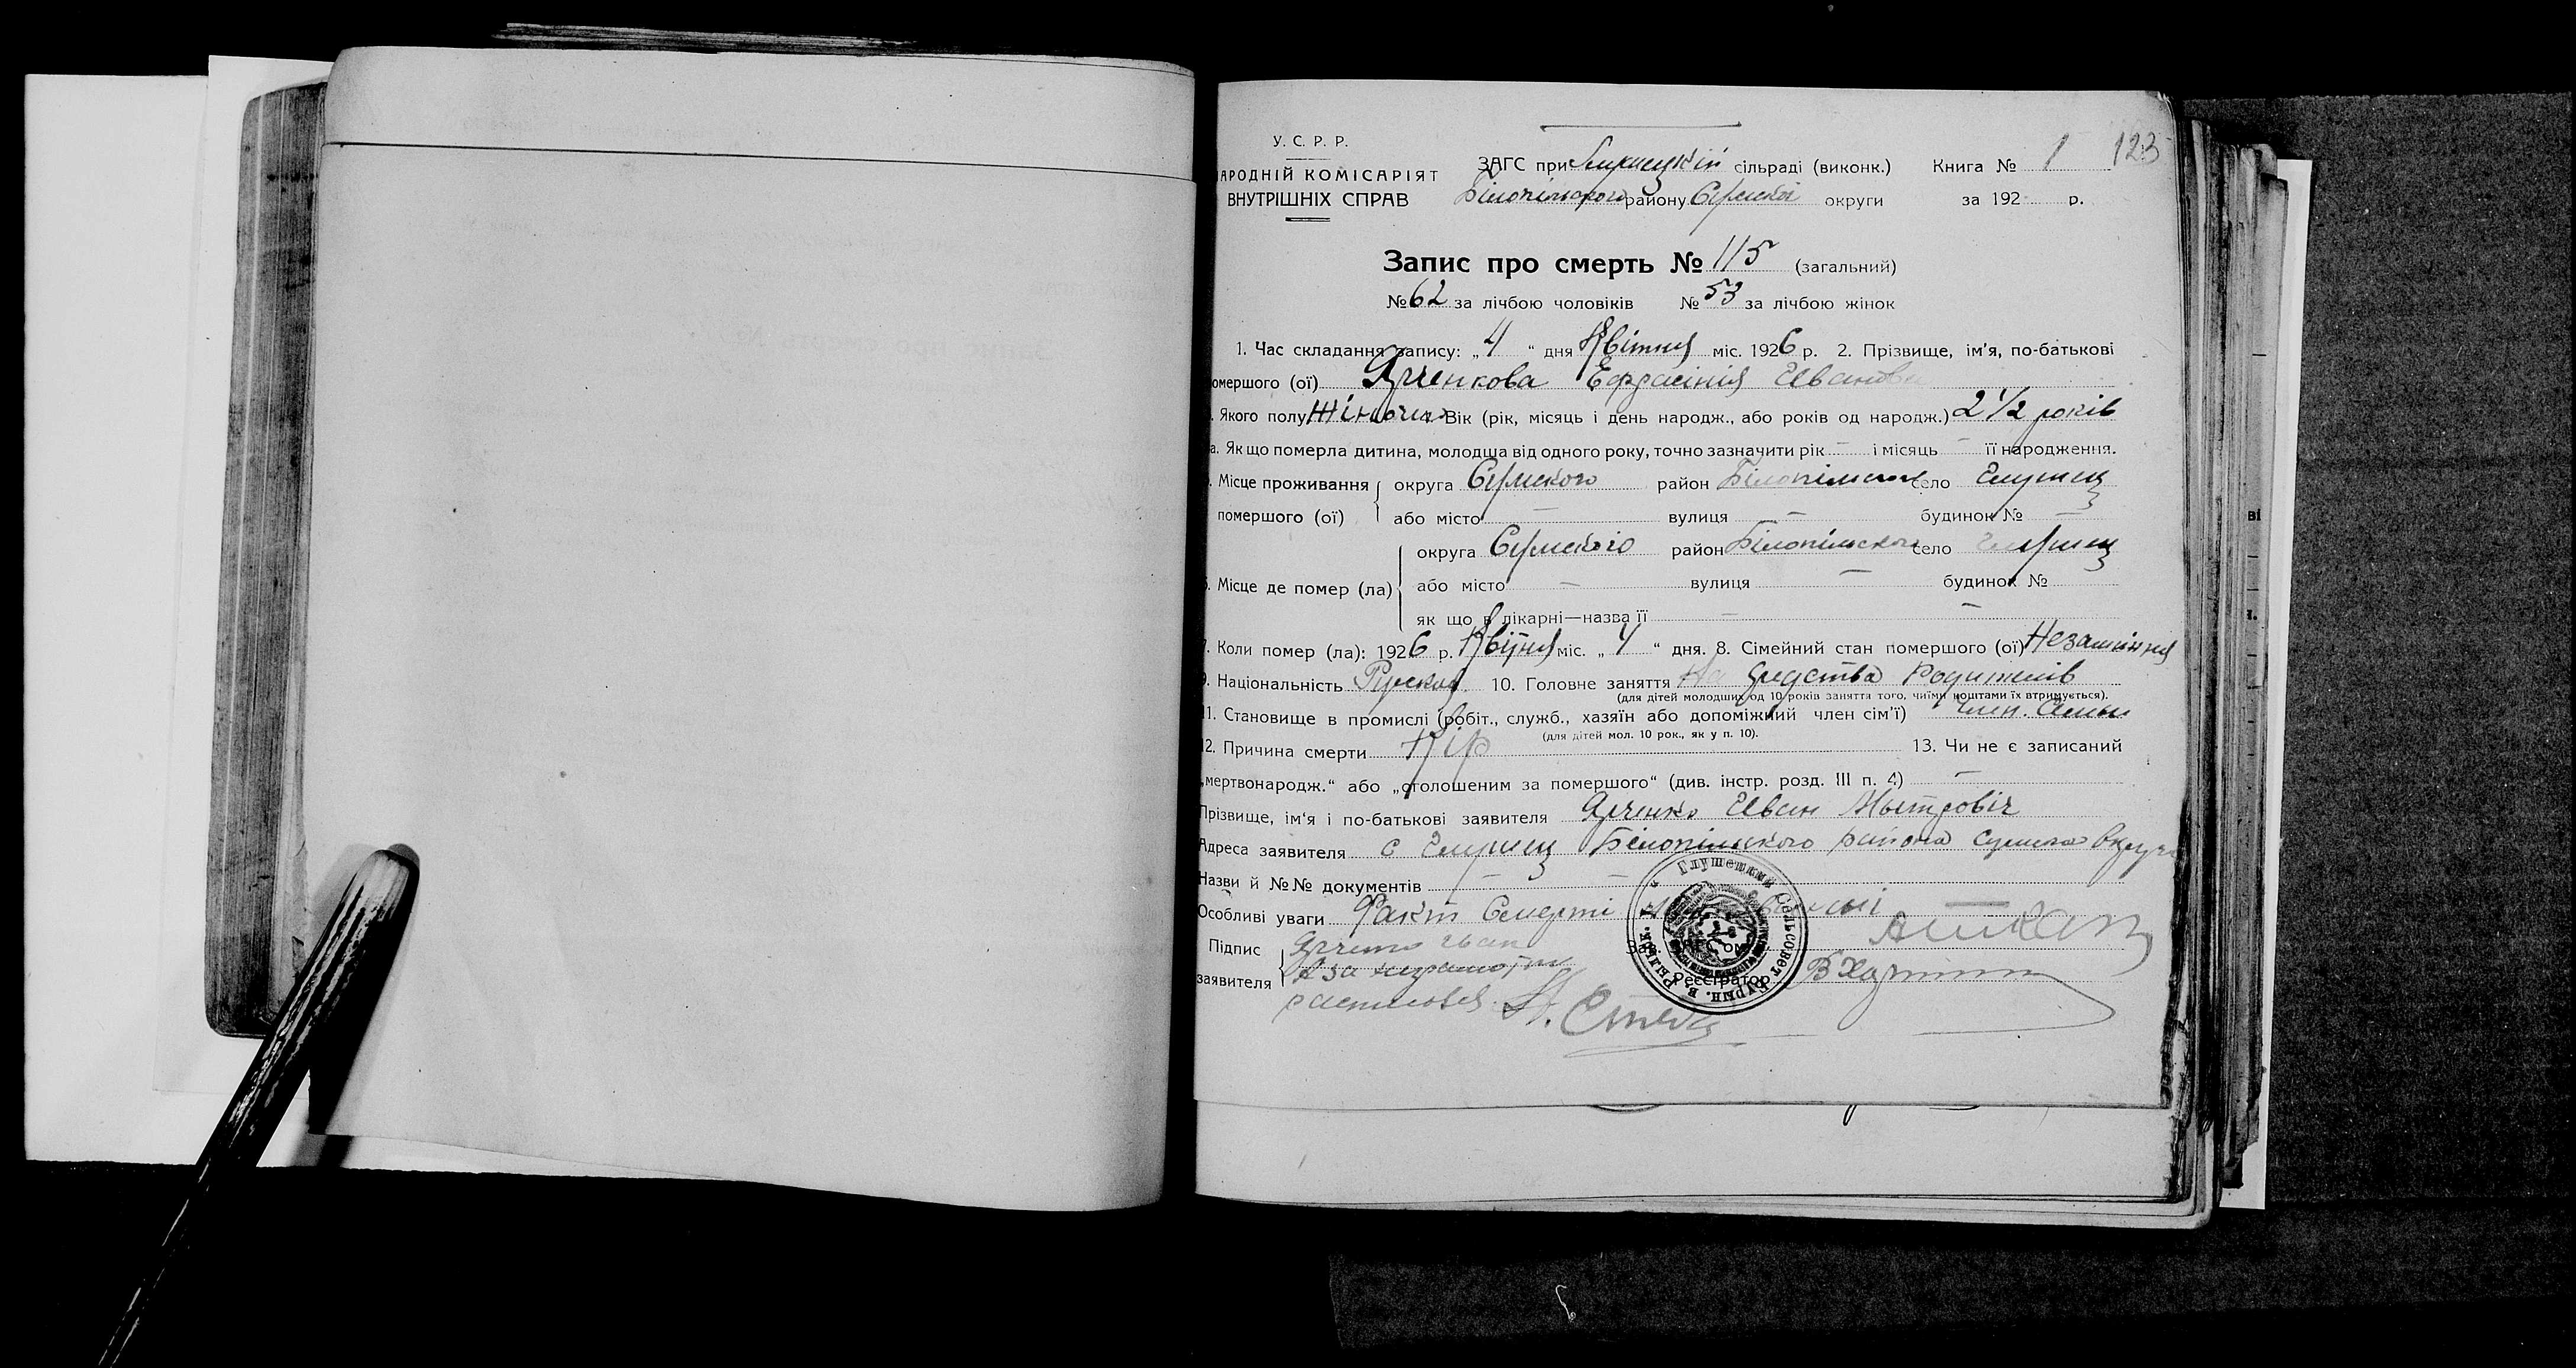 У. С. Р. Р.
АРОДНІЙ КОМІСАРІЯТ
ВНУТРІШНІХ СПРАВ
ЗАГС при сільраді (виконк.) Книга № 1 123
Білопільского району Сумскої округи за 192 р.
Запис про смерть № 115 (загальний)
№ 62 за лічбою чоловіків № 53 за лічбою жінок
1. Час складання запису: „ 4 “ дня Квітня міс. 1926 р. 2. Прізвище, ім'я, по-батькові
омершого (ої) Ярченкова Ефрасінія Ивановн
. Якого полу Жіночи Вік (рік, місяць і день народж., або років од народж.) 2 1/2 років
а. Як що померла дитина, молодша від одного року, точно зазначити рік – і місяць – її народження.
. Місце проживання округа Сумского район Білопільског село
помершого (ої) або місто – вулиця – будинок № –
округа Сумского район Білопільского село
. Місце де помер (ла) або місто – вулиця – будинок №
як що в лікарні—назва її – –
7. Коли помер (ла): 1926 р. Квітня міс. „ 4 “ дня. 8. Сімейний стан помершого (ої)
9. Національність Руская 10. Головне заняття На средства Родителів
(для дітей молодших од 10 років заняття того, чиїми коштами їх втримується).
11. Становище в промислі (робіт., служб., хазяїн або допоміжний член сім'ї) член. Семьи
(для дітей мол. 10 рок., як у п. 10).
12. Причина смерти Кір 13. Чи не є записаний
„мертвонародж.“ або „оголошеним за помершого“ (див. інстр. розд. III п. 4) –
Прізвище, ім'я і по-батькові заявителя Ярченко Иван Мытровіч
Адреса заявителя с Білопільского района
Назви й №№ документів – –
Особливі уваги Факт Смерті
Підпис Ярченко Иван
заявителя А за неграмотн
Реєстратор
росписався
Глушецкий Сельсовет Бурын. в. Рыльск. у.